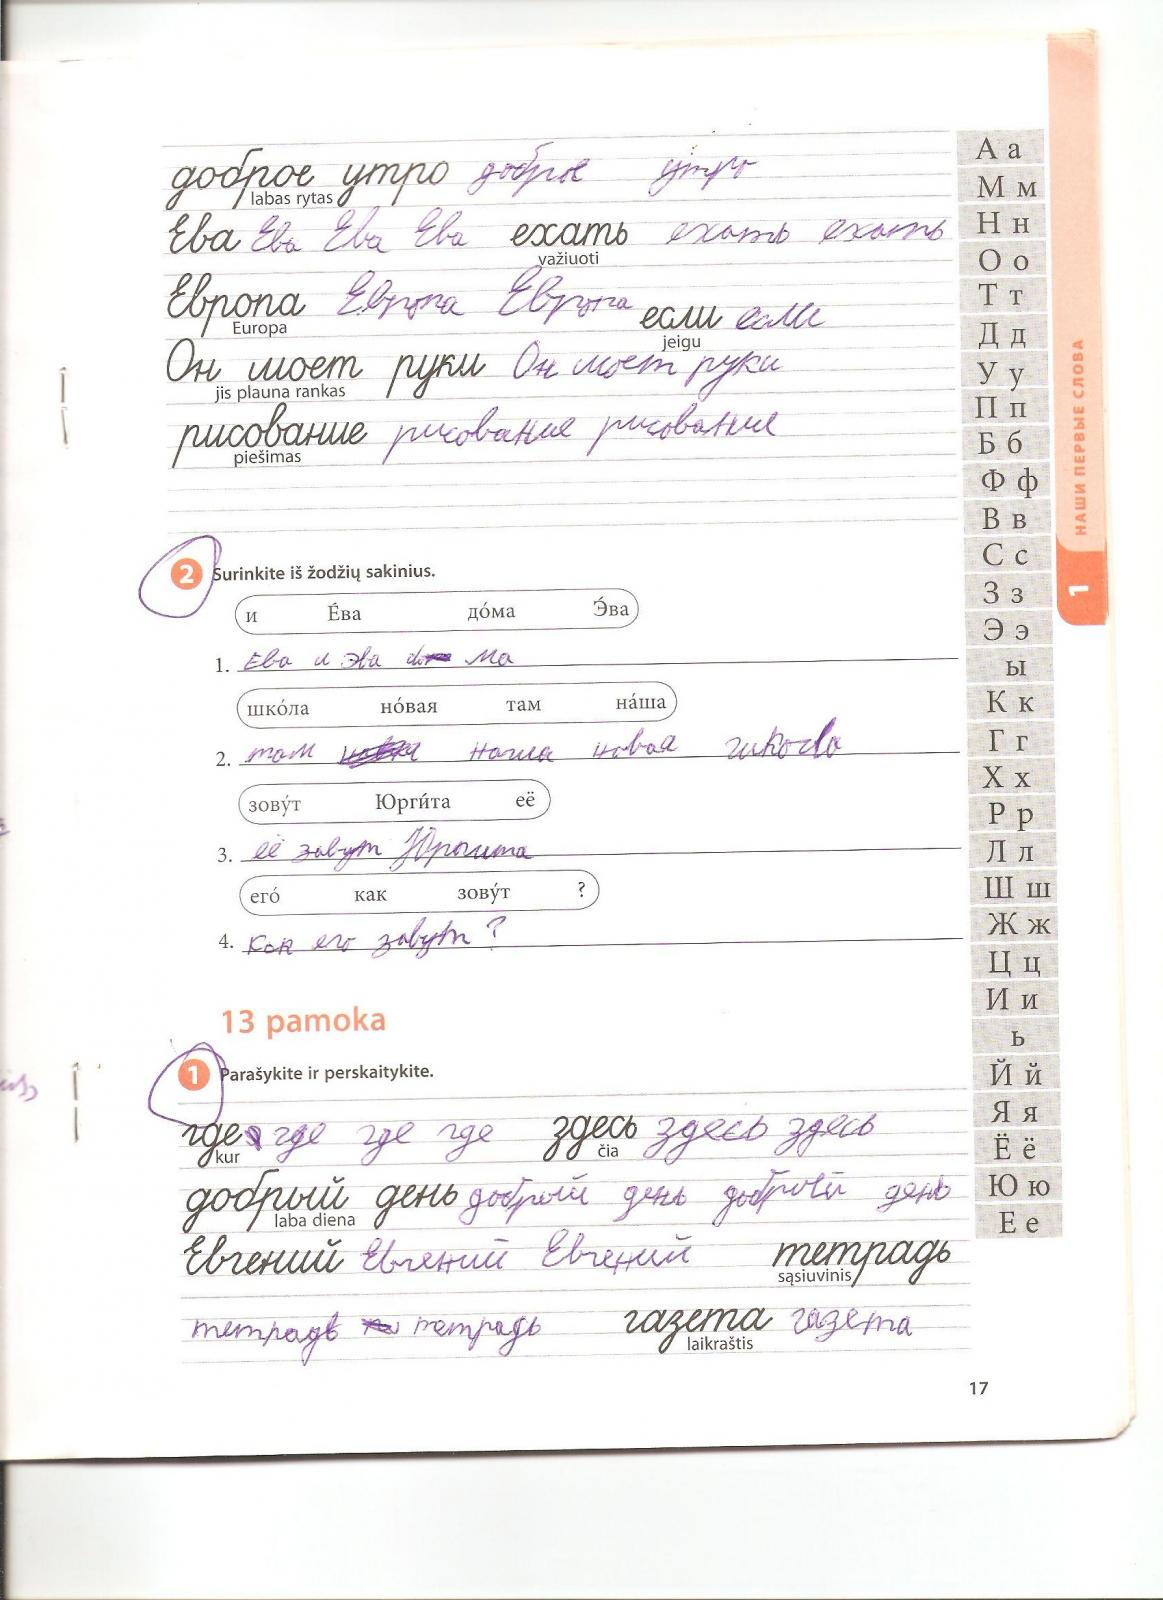 доброе утро доброе утро
labas rytas
Ева Ева Ева Ева ехать ехать ехать
važiuoti
Европа Европа Европа если если
Europa jeigu
Он моет руки Он моет руки
jis plauna rankas
рисование рисование рисование
piešimas
2 Surinkite iš žodžių sakinius.
и Е́ва до́ма Э́ва
1. Ева и Эва до ма
шко́ла но́вая там на́ша
2. там наша новая школа
зову́т Юрги́та её
3. её зовут Юргита
его́ как зову́т ?
4. Как его зовут ?
13 pamoka
1 Parašykite ir perskaitykite.
где где где где здесь здесь здесь
kur čia
добрый день добрый день добрый день
laba diena
Евгений Евгений Евгений тетрадь
sąsiuvinis
тетрадь тетрадь газета газета
laikraštis
17
А а
М м
Н н
О о
Т т
Д д
У у
П п
Б б
Ф ф
В в
С с
З з
Э э
ы
К к
Г г
Х х
Р р
Л л
Ш ш
Ж ж
Ц ц
И и
ь
Й й
Я я
Ё ё
Ю ю
Е е
НАШИ ПЕРВЫЕ СЛОВА
1